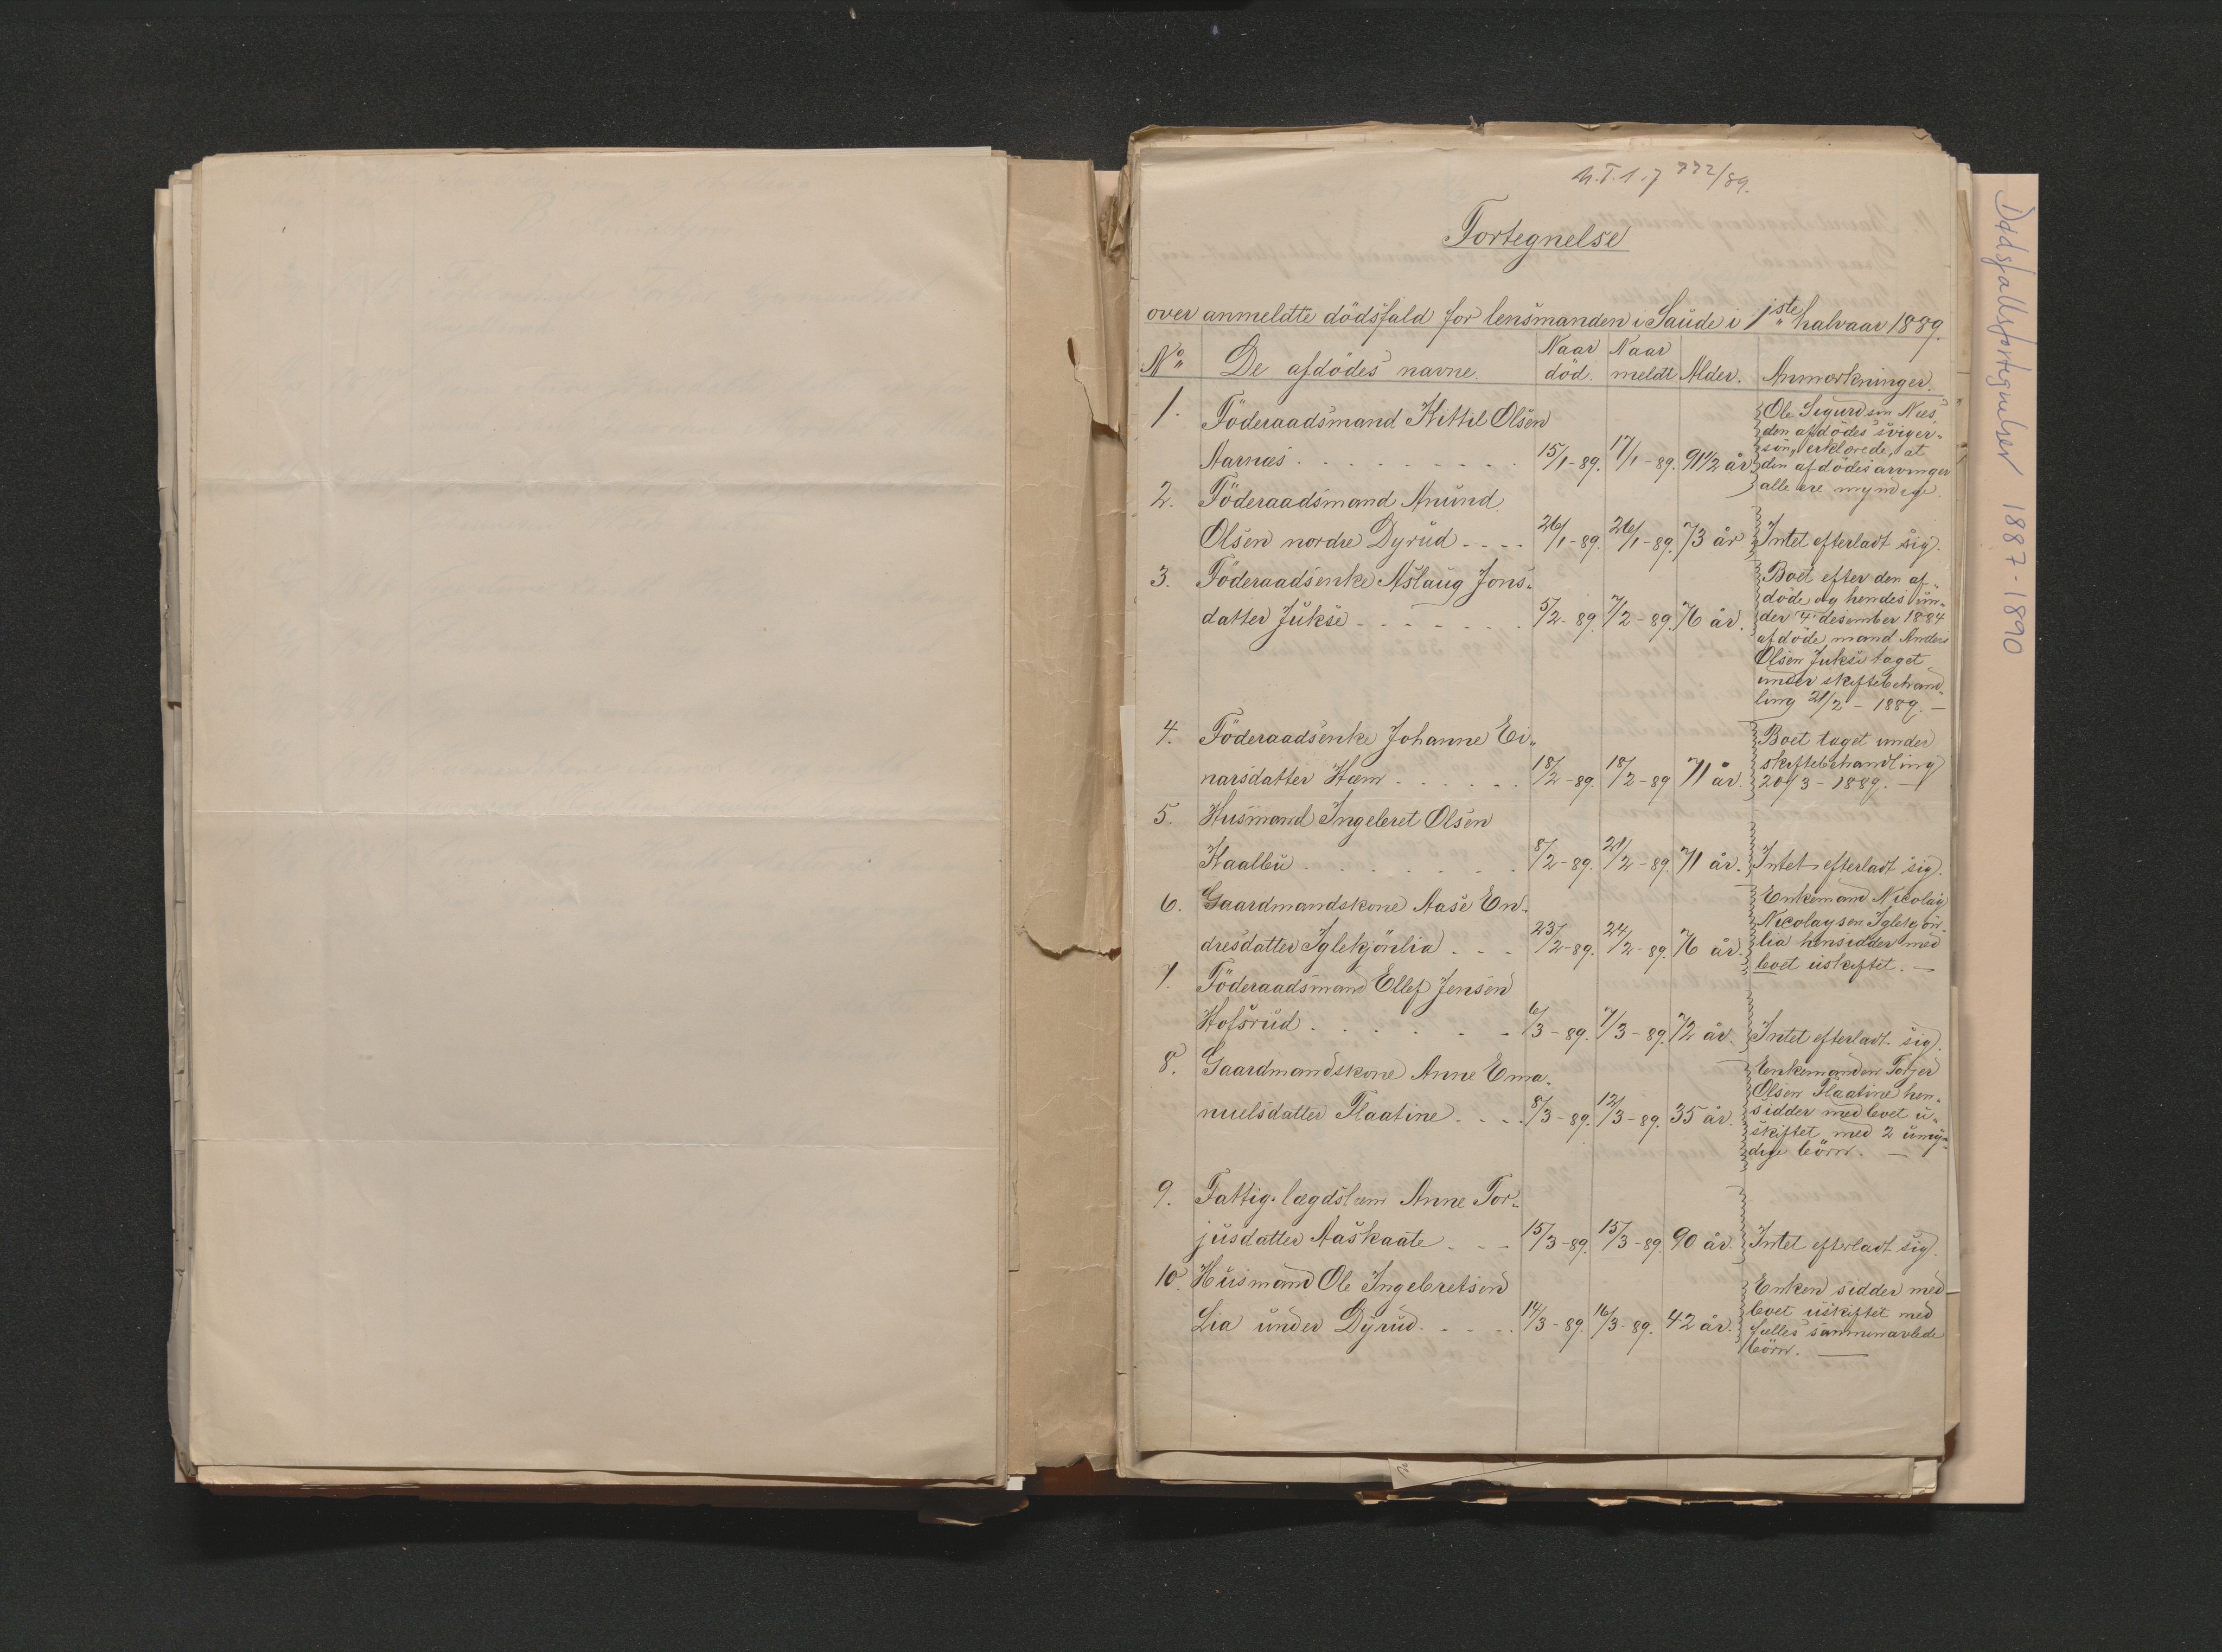 772/89.
Fortegnelse
over anmeldte dödsfald for lensmanden i Saude i 1ste halvaar 1889.
No De afdödes navne. Naar död. Naar meldt Alder. Anmærkninger.
1. Föderaadsmand Kittil Olsen
Aarnæs . . . 15/1-89. 17/1-89. 91 1/2 år
Ole Sigurdsen Næs
den afdödes sviger-
sön, erklærede, at
den afdödes arvinger
alle ere myndige.
2. Föderaadsmand Anund
Olsen nordre Dyrud - - - - 26/1-89. 26/1-89. 73 år Intet efterladt sig.
3. Föderaadsenke Aslaug Jons-
datter Jukse - - - - - - - 5/2-89. 7/2-89. 76 år.
Boet efter den af-
döde og hendes un-
der 4 desember 1884
afdöde mand Anders
Olsen Jukse taget
under skiftebehand-
ling 21/2-1889. -
4. Föderaadsenke Johanne Ei-
narsdatter Hæm . . . . . . 18/2-89. 18/2-89 71 år.
Boet taget under
skiftebehandling
20/3-1889. -
5. Husmand Ingebret Olsen
Kaalbu . . . . . . . 8/2-89. 21/2-89. 71 år. Intet efterladt sig.
6. Gaardmandskone Aase En-
dresdatter Iglekjönlia . - - 23/2-89. 24/2-89. 76 år.
Enkemand Nicolay
Nicolaysen Iglekjön-
lia hensidder med
boet uskiftet. -
7. Föderaadsmand Ellef Jensen
Hofsrud . . . . . - - 6/3-89. 7/3-89. 72 år. Intet efterladt sig.
8. Gaardmandskone Anne Ema-
nuelsdatter Flaatine . - - . 8/3-89. 12/3-89. 35 år.
Enkemanden Torjer
Olsen Flaatine hen-
sidder med boet u-
skiftet med 2 umyn-
dige börn. -
9. Fattig-lægdslem Anne Tor-
jusdatter Aaskaate . - - 15/3-89. 15/3-89. 90 år. Intet efterladt sig.
10. Husmand Ole Ingebretsen
Lia under Dyrud. . - - . 14/3-89. 16/3-89. 42 år.
Enken sidder med
boet uskiftet med
fælles sammenavlede
börn. -
Dødsfallsfortegnelser 1887-1890